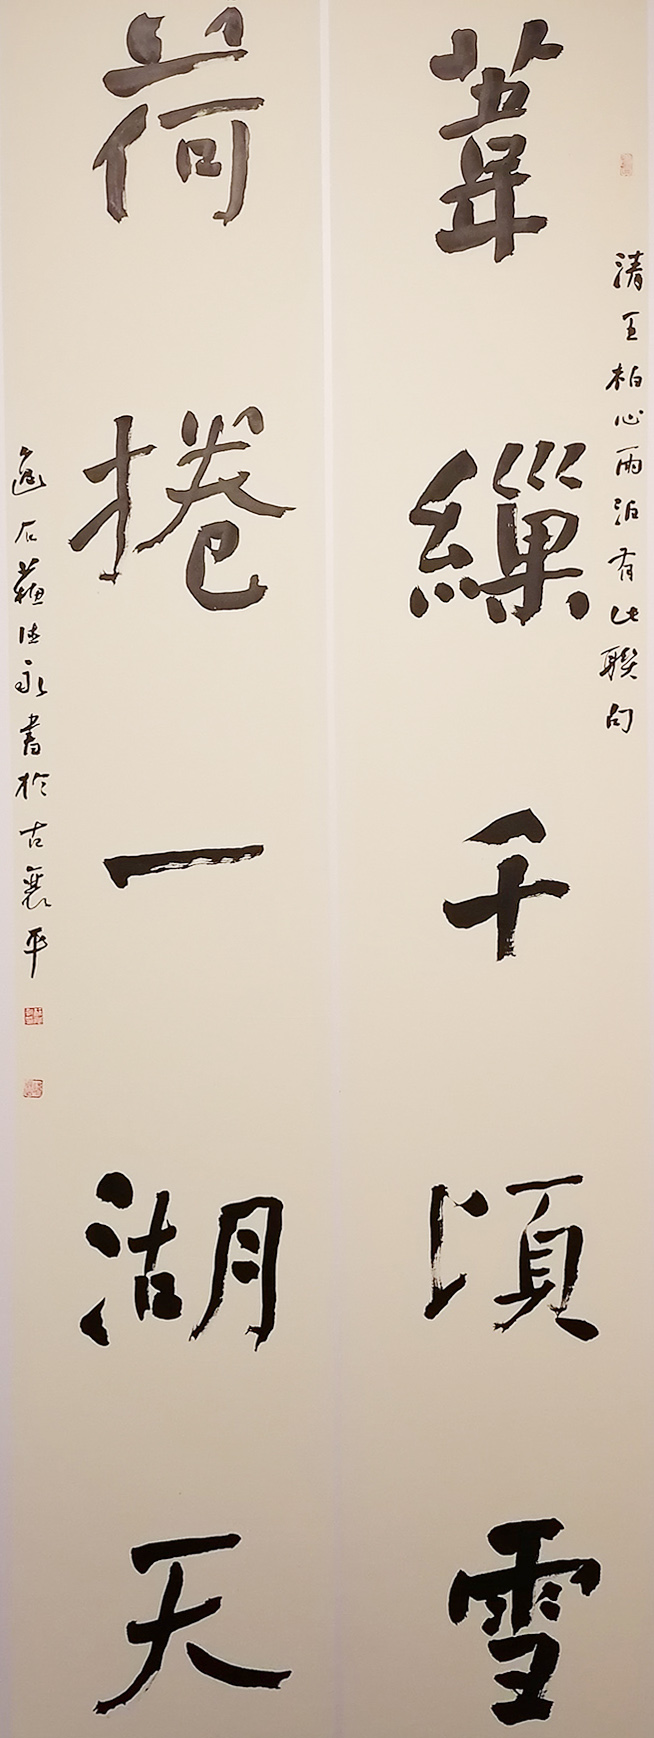 清王柏心雨泊有此聯句
葦繅千頃雪
荷捲一湖天
逸石蘓德永書於古襄平